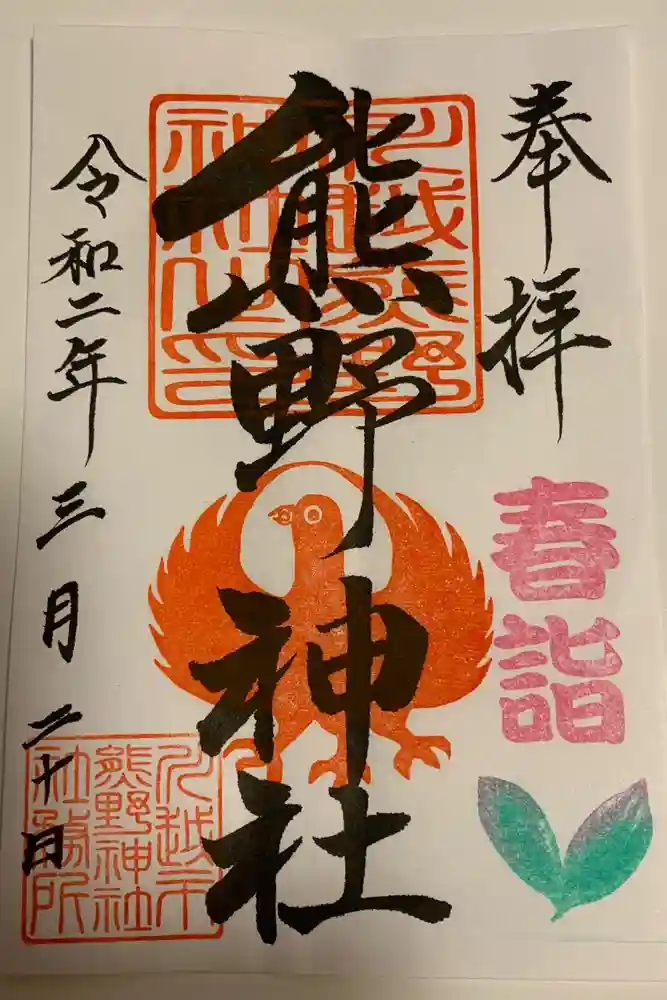 奉拝
春詣
熊野神社
川越熊野神社之印
令和二年三月二十日
川越市熊野神社社務所